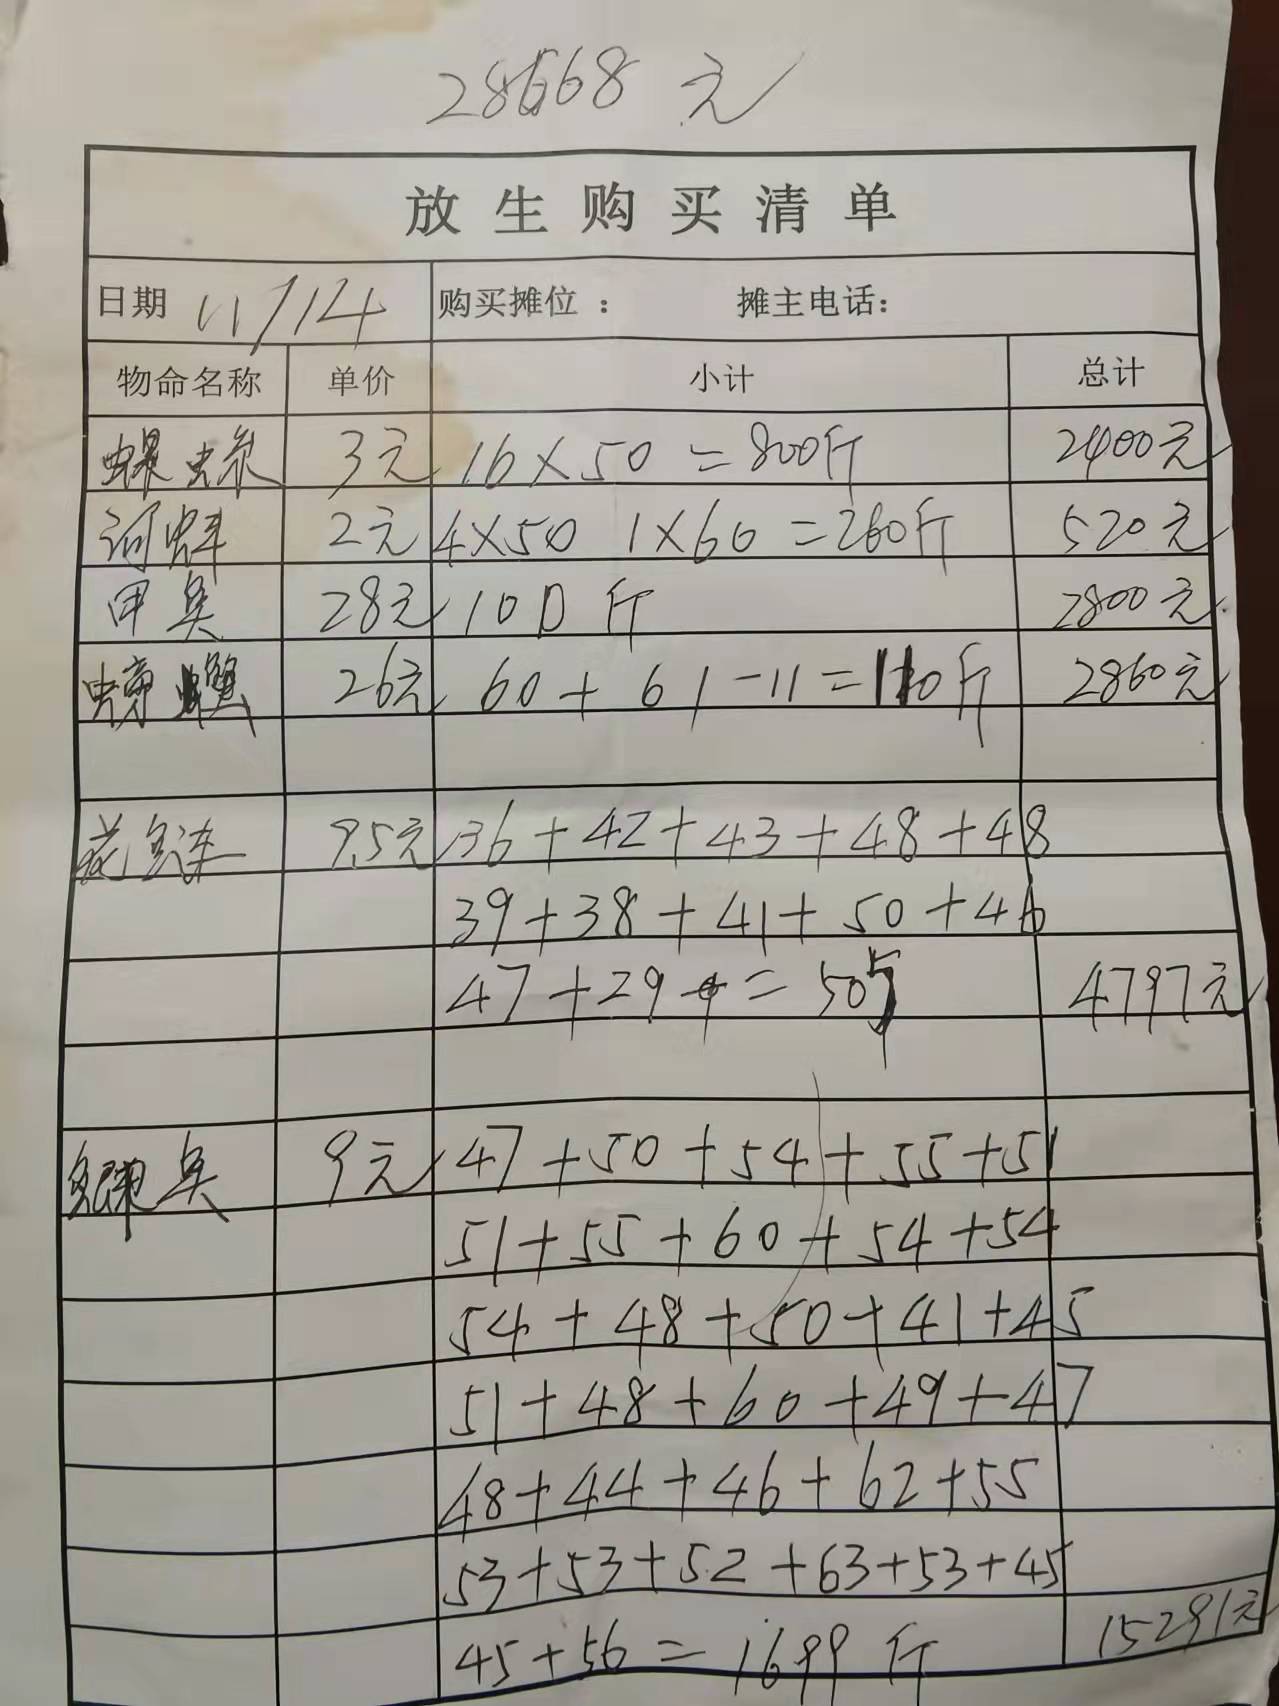 28668元
放生购买清单
日期 11/14 购买摊位： 摊主电话：
物命名称 单价 小计 总计
螺蛳 3元 16×50=800斤 2400元
河蚌 2元 4×50 1×60=260斤 520元
甲鱼 28元 100斤 2800元
螃蟹 26元 60+61-11=110斤 2860元
花鲢 9.5元 36+42+43+48+48
39+38+41+50+46
47+29=505 4797元
鳊鱼 9元 47+50+54+55+51
51+55+60+54+54
54+48+50+41+45
51+48+60+49+47
48+44+46+62+55
53+53+52+63+53+45
45+56=1699斤 15291元